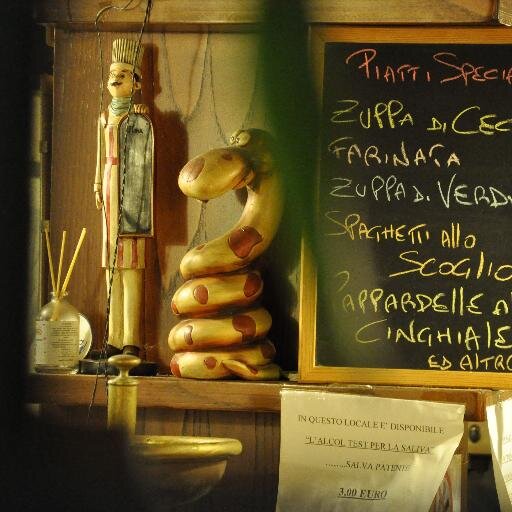 PIATTI SPECIA
ZUPPA DI CEC
FARINATA
ZUPPA DI VERDU
SPAGHETTI ALLO
SCOGLIO
PAPPARDELLE AL
CINGHIALE
ED ALTRO
IN QUESTO LOCALE E' DISPONIBILE
"L'ALCOL TEST PER LA SALIVA"
........SALVA PATENTE
3,00 EURO